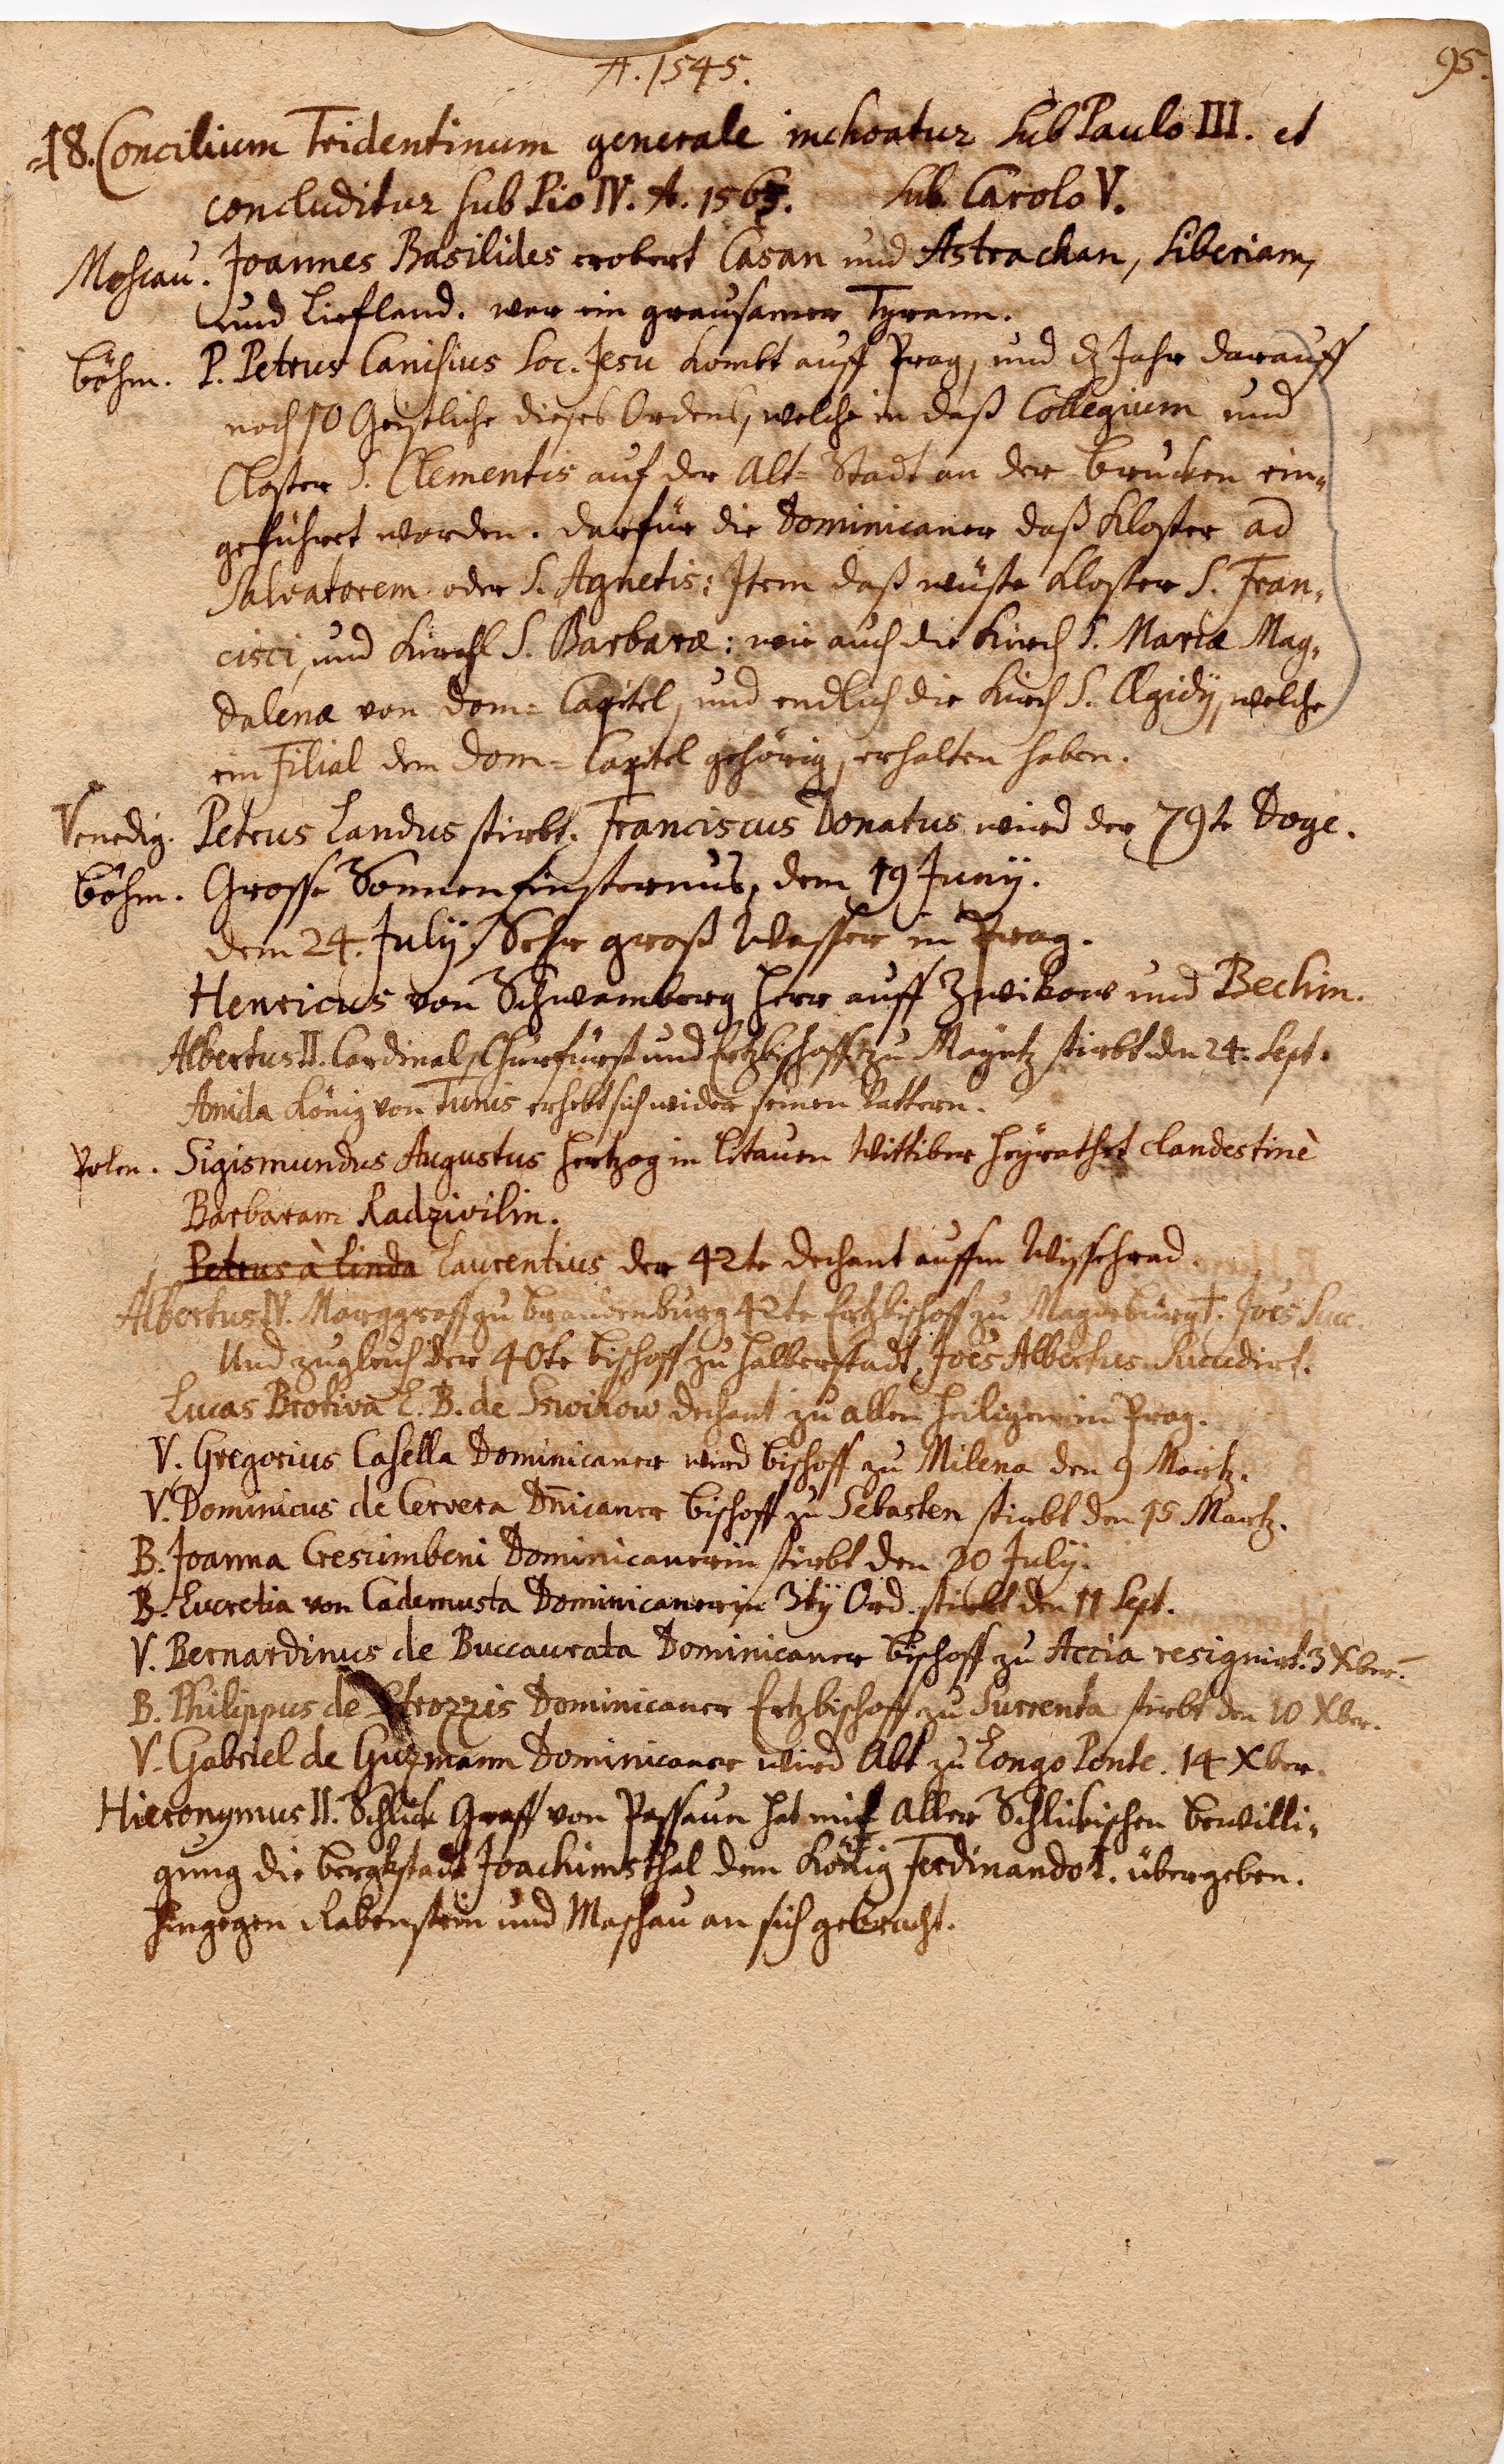 A. 1545.
95.
18. Concilium Tridentinum generale inchoatur sub Paulo III. et
concluditur sub Pio IV. A. 1563. sub. Carolo V.
Moscau. Joannes Basilides erobert Casan und Astrachan, Siberiam,
und Liefland. war ein grausamer Tyrann.
Böhm. P. Petrus Canisius Soc. Jesu kombt auff Prag, und dz Jahr darauff
noch 10 Geistliche dieses Ordens, welche in daß Collegium und
Closter S. Clementis auf der Alt=Stadt an der Brucken ein„
geführet worden. darfür die Dominicaner daß Kloster ad
Salvatorem oder S. Agnetis: Item daß wüste Kloster S. Fran„
cisci, und Kirchl S. Barbaræ: wie auch die Kirch S. Mariæ Mag„
dalenæ von Dom=Capitel, und endlich die Kirch S. Ægidÿ, welche
ein Filial dem Dom=Capitel gehörig, erhalten haben.
Venedig. Petrus Landus stirbt. Franciscus Donatus wird der 79te Doge.
Böhm. Grosse Sonnenfinsternus, dem 19 Junÿ.
dem 24. Julÿ. Sehr groß Wasser in Prag.
Henricus von Schwamberg Herr auff Zwikow und Bechin.
Albertus II. Cardinal, Churfürst und Ertzbischoff zu Mayntz stirbt den 24. Sept.
Amida König von Tunis erhebt sich wider seinen Vattern.
Polen. Sigismundus Augustus Hertzog in Litauen Wittiber heyrathet clandestinè
Barbaram Radzivilin.
Petrus à Linda Laurentius der 42te Dechant auffm Wissehrad.
Albertus IV. Marggraff zu Brandenburg 42te Ertzbischoff zu Magdeburg †. Joēs Succ.
Und zugleich der 40te Bischoff zu Halberstadt, Joēs Albertus Succedirt.
Lucas Brotiva E. B. de Sswihow Dechant zu allen Heiligen in Prag.
V. Gregorius Casella Dominicaner wird Bischoff zu Milena den 9 Martz.
V. Dominicus de Cervera Dn̄icaner Bischoff zu Sebasten stirbt den 15 Martz.
B. Joanna Crescimbeni Dominicanerin stirbt den 20 Julÿ.
B. Lucretia von Cademusta Dominicanerin 3tÿ Ord. stirbt den 11 Sept.
V. Bernardinus de Buccaurata Dominicaner Bischoff zu Accia resignirt. 3 Xber.
B. Philippus de Strozzis Dominicaner Ertzbischoff zu Surrenta stirbt den 10 Xber.
V. Gabriel de Guzmann Dominicaner wird Abt zu Longo Ponte. 14 Xber.
Hieronymus II. Schlick Graff von Passaun hat mit aller Schlickischen bewilli„
gung die Bergkstadt Joachimsthal dem König Ferdinando I. übergeben.
hingegen Rabenstein und Maschau an sich gebracht.